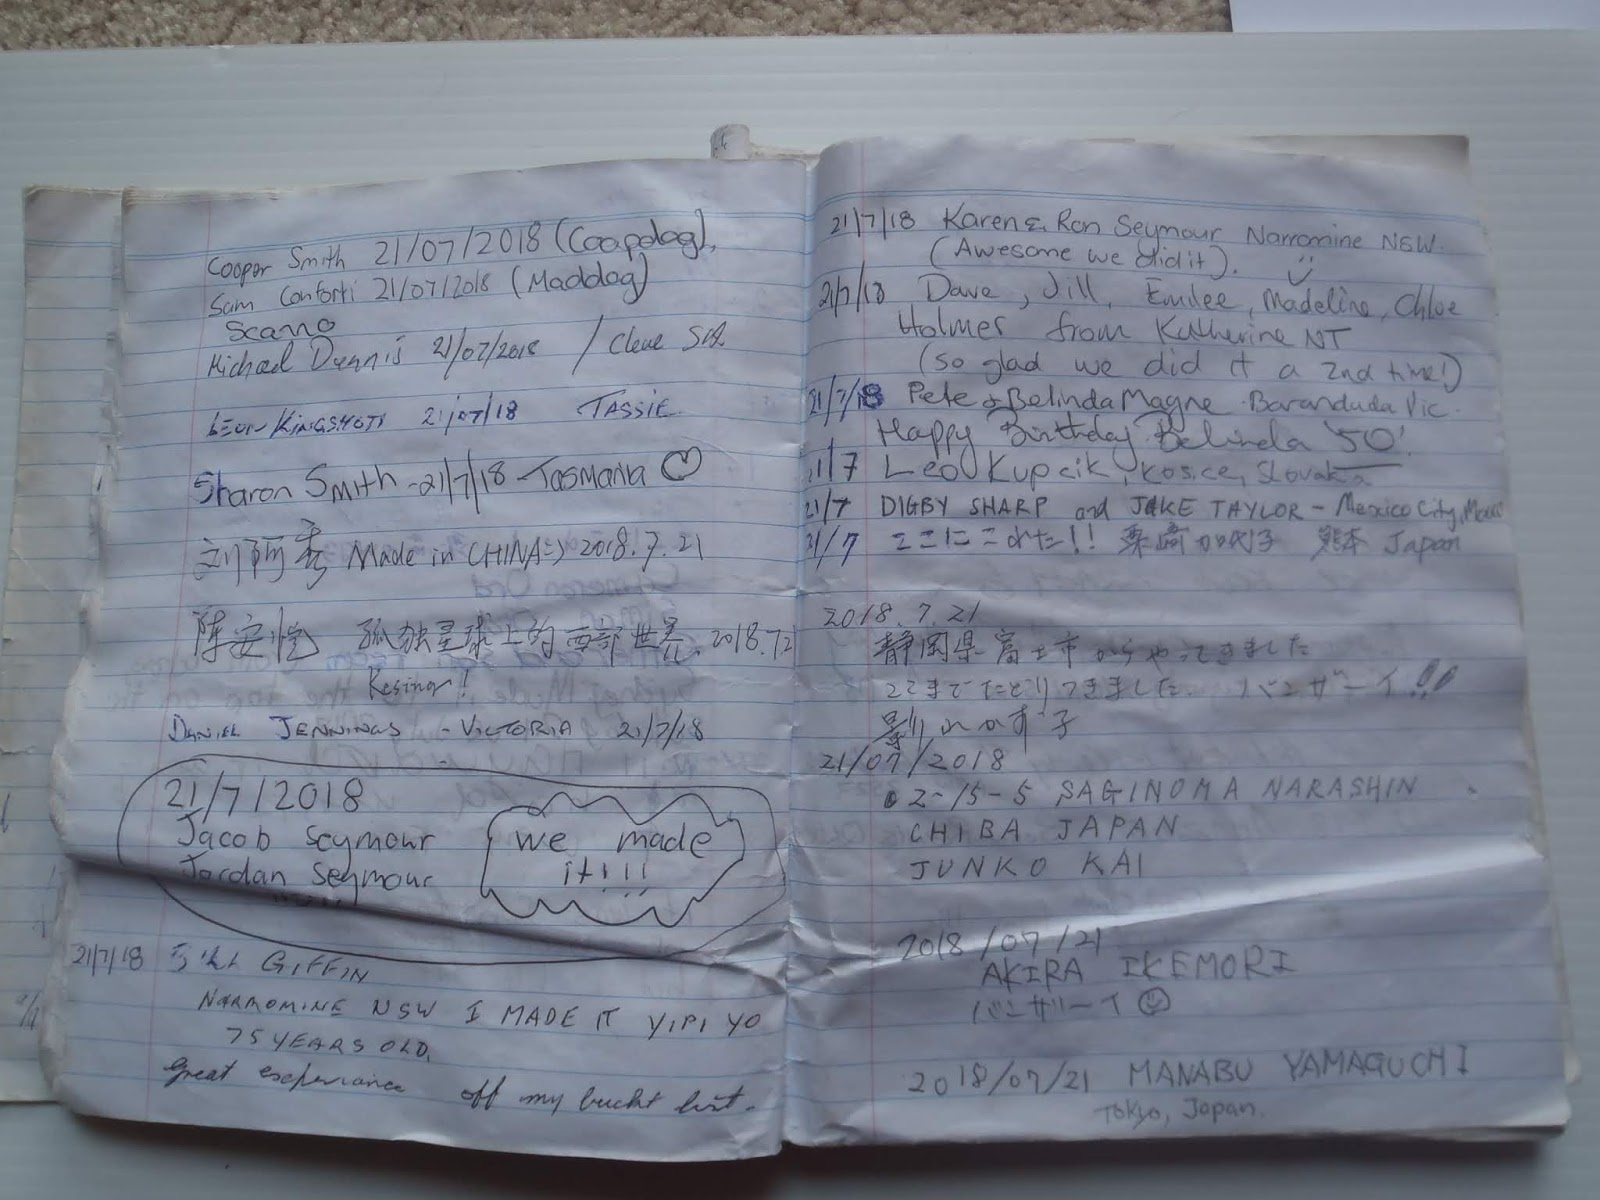 Cooper Smith 21/07/2018 (Coopdog),
Sam Conforti 21/07/2018 (Maddog)
Scanno
Michael Dennis 21/07/2018 / Cleve SA
Leon KINGSHOTT 21/07/18 TASSIE
Sharon Smith - 21/7/18 - Tasmania
刘阿秀 Made in CHINA :) 2018.7.21
陈安 孤独星球上的西部世界. 2018.7.21
DANIEL JENNINGS - VICTORIA 21/7/18
21/7/2018
Jacob Seymour
Jordan Seymour
we made
it!!!
21/7/18 GIFFIN
NARROMINE NSW I MADE IT YIPI YO
75 YEARS OLD,
Great experiance off my bucket list.
21/7/18 Karen & Ron Seymour Narromine NSW.
(Awesome we did it).
21/7/18 Dave, Jill, Emilee, Madeline, Chloe
Holmes from Katherine NT
(so glad we did it a 2nd time!)
21/7/18 Pete & Belinda Magne. Baranduda Vic.
Happy Birthday Belinda '50'!
21/7 Leo Kupcik, Kosice, Slovakia
21/7 DIGBY SHARP and JAKE TAYLOR - Mexico City, Mexico
21/7 ここにこれた!! 栗崎加代子 熊本 Japan
2018.7.21
静岡県富士市からやってきました
ここまでたどりつきました. バンザーイ!!!
影山かず子
21/07/2018
2-15-5 SAGINOMA NARASHIN
CHIBA JAPAN
JUNKO KAI
2018/07/21
AKIRA IKEMORI
バンザーイ
2018/07/21 MANABU YAMAGUCHI
Tokyo, Japan.